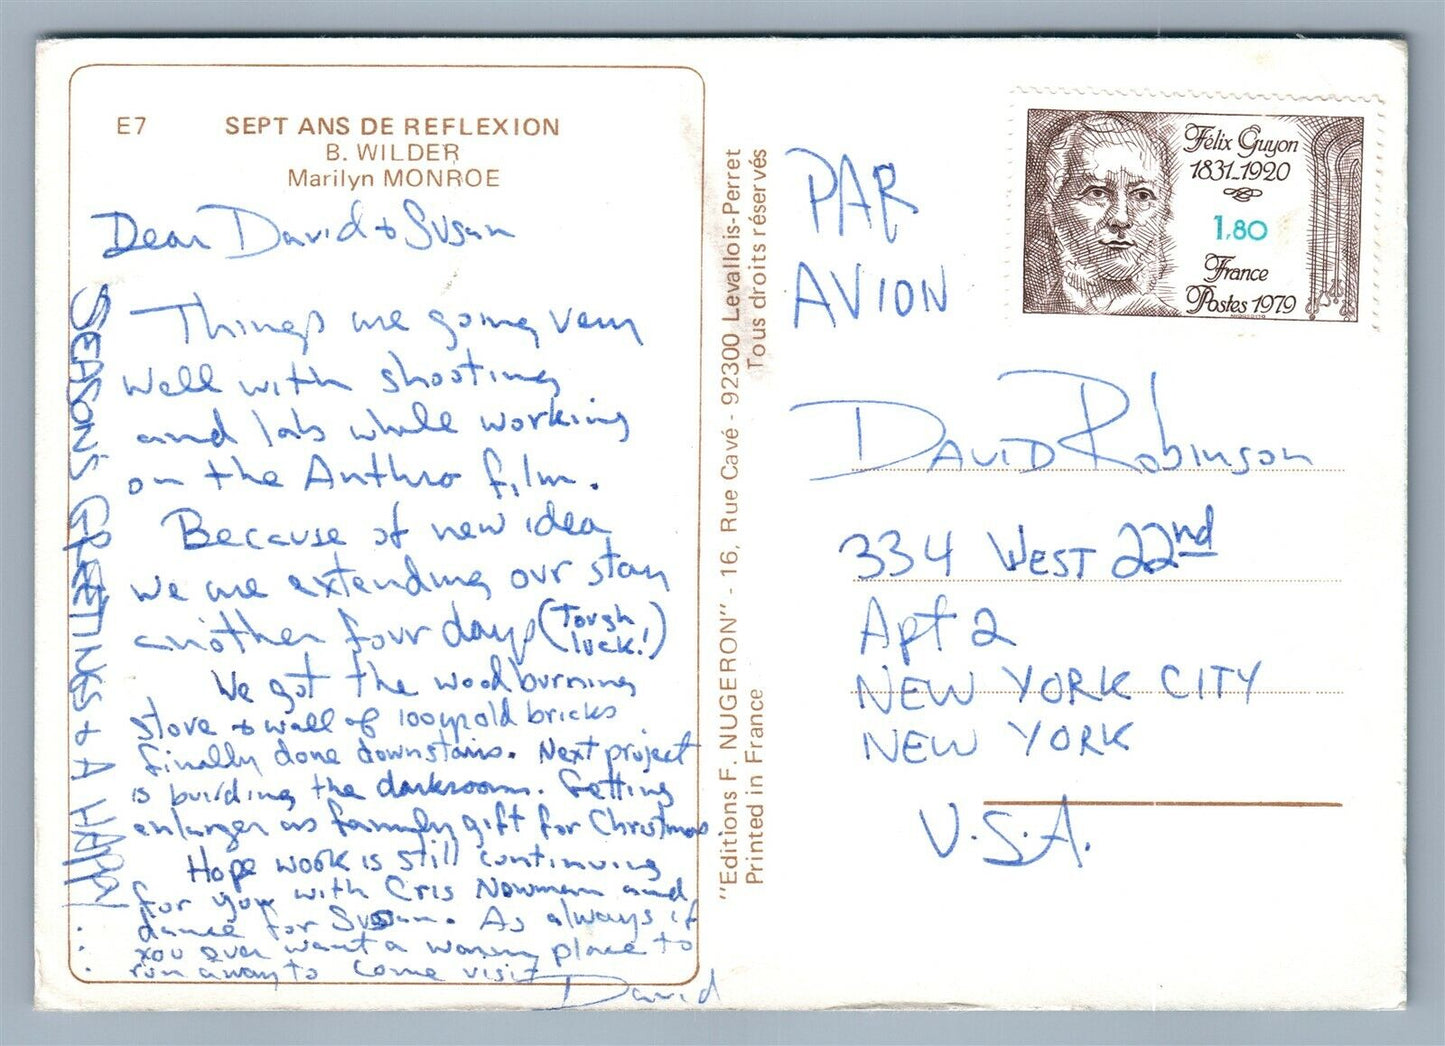 E7 SEPT ANS DE REFLEXION
B. WILDER
Marilyn MONROE
Dear David & Susan
Things are going very
well with shooting
and lab while working
on the Anthro film.
Because of new idea
we are extending our stay
another four days (Tough
luck!)
We got the woodburning
stove & wall of 100yr old bricks
finally done downstairs. Next project
is building the darkroom. Getting
enlarger as family gift for Christmas.
Hope work is still continuing
for you with Cris Nowman and
dance for Susan. As always if
you ever want a warm place to
run away to come visit
David
SEASON'S GREETINGS & A HAPPY...
"Editions F. NUGERON" - 16, Rue Cavé - 92300 Levallois-Perret
Printed in France Tous droits réservés
PAR
AVION
Félix Guyon
1831-1920
1,80
France
Postes 1979
David Robinson
334 WEST 22nd
Apt 2
NEW YORK CITY
NEW YORK
U.S.A.